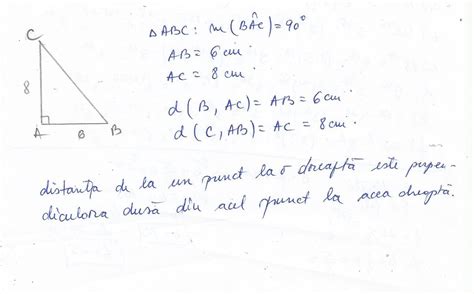 C
Δ ABC: m(BÂC)=90°
AB = 6 cm
AC = 8 cm
8
d(B, AC) = AB = 6 cm
A 6 B
d(C, AB) = AC = 8 cm
distanța de la un punct la o dreaptă este perpen-
diculara dusă din acel punct la acea dreaptă.